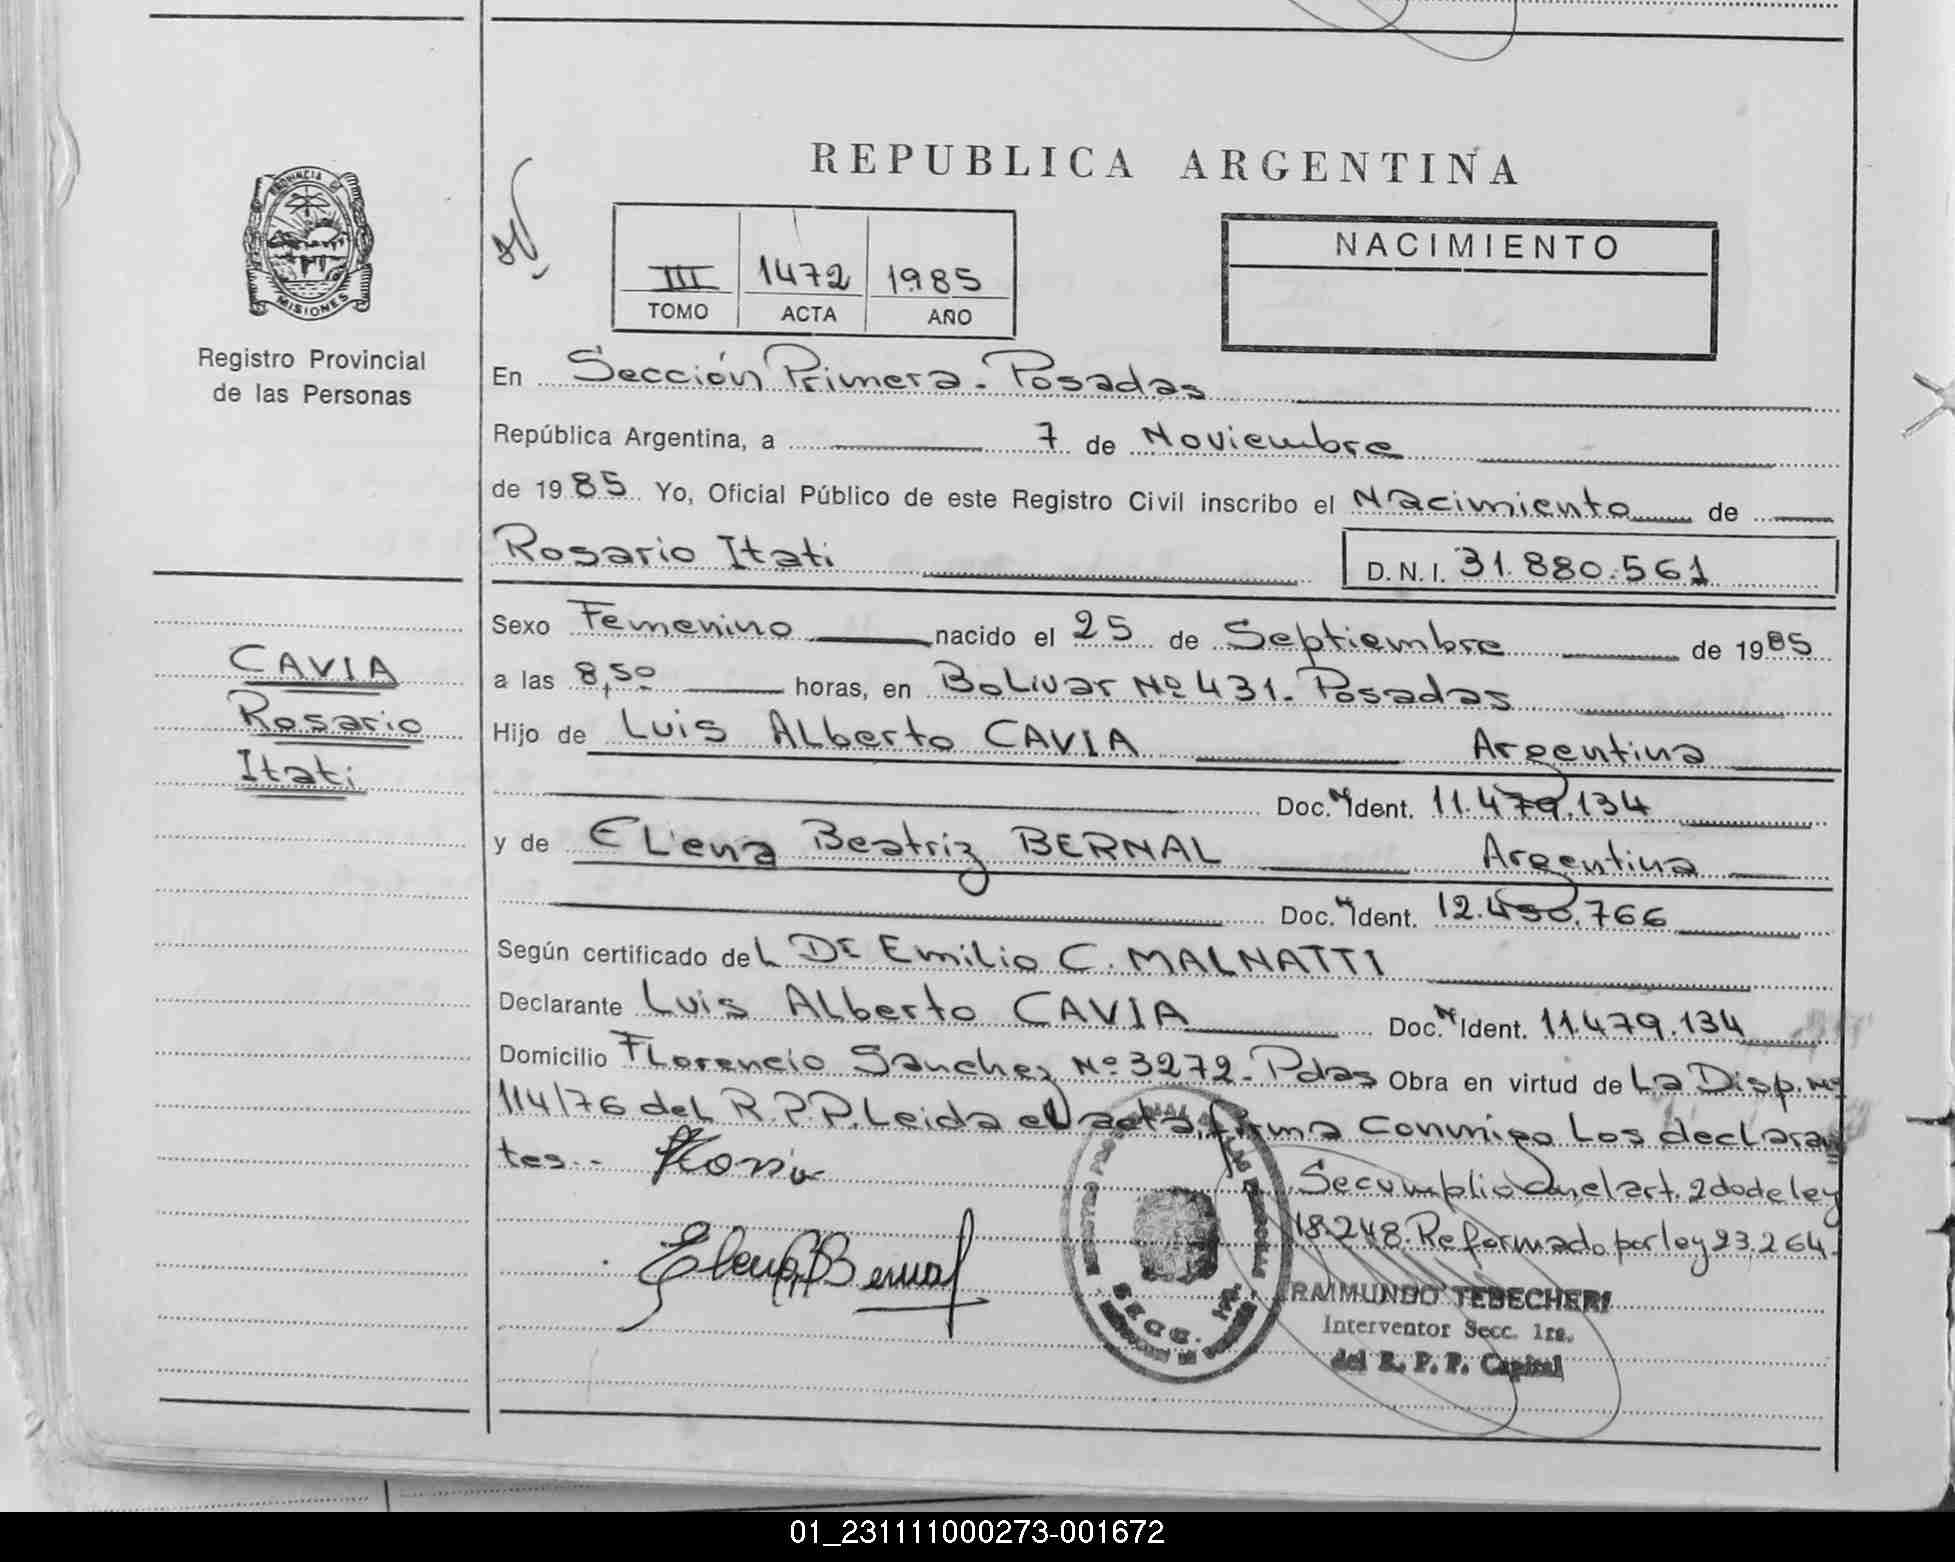 REPUBLICA ARGENTINA
PROVINCIA DE
MISIONES
Registro Provincial
de las Personas
III 1472 1985
TOMO ACTA AÑO
NACIMIENTO
En Sección Primera - Posadas
República Argentina, a 7 de Noviembre
de 1985 Yo, Oficial Público de este Registro Civil inscribo el Nacimiento de
Rosario Itati D.N.I. 31.880.561
Sexo Femenino nacido el 25 de Septiembre de 1985
a las 8,50 horas, en Bolivar Nº 431 - Posadas
Hijo de Luis Alberto CAVIA Argentina
Doc. N Ident. 11.479.134
y de Elena Beatriz BERNAL Argentina
Doc. N Ident. 12.450.766
Según certificado del Dr Emilio C. MALNATTI
Declarante Luis Alberto CAVIA Doc. N Ident. 11.479.134
Domicilio Florencio Sanchez Nº 3272 - Pdas Obra en virtud de La Disp. Nº
114/76 del R.P.P. Leida el acta, firma conmigo los declaran
tes.-
CAVIA
Rosario
Itati
Se cumplio con el art. 2do de ley
18.248. Reformado por ley 23.264.
Elena B Bernal
RAIMUNDO TEBECHERI
Interventor Secc. 1ra.
del R. P. P. Capital
01_231111000273-001672